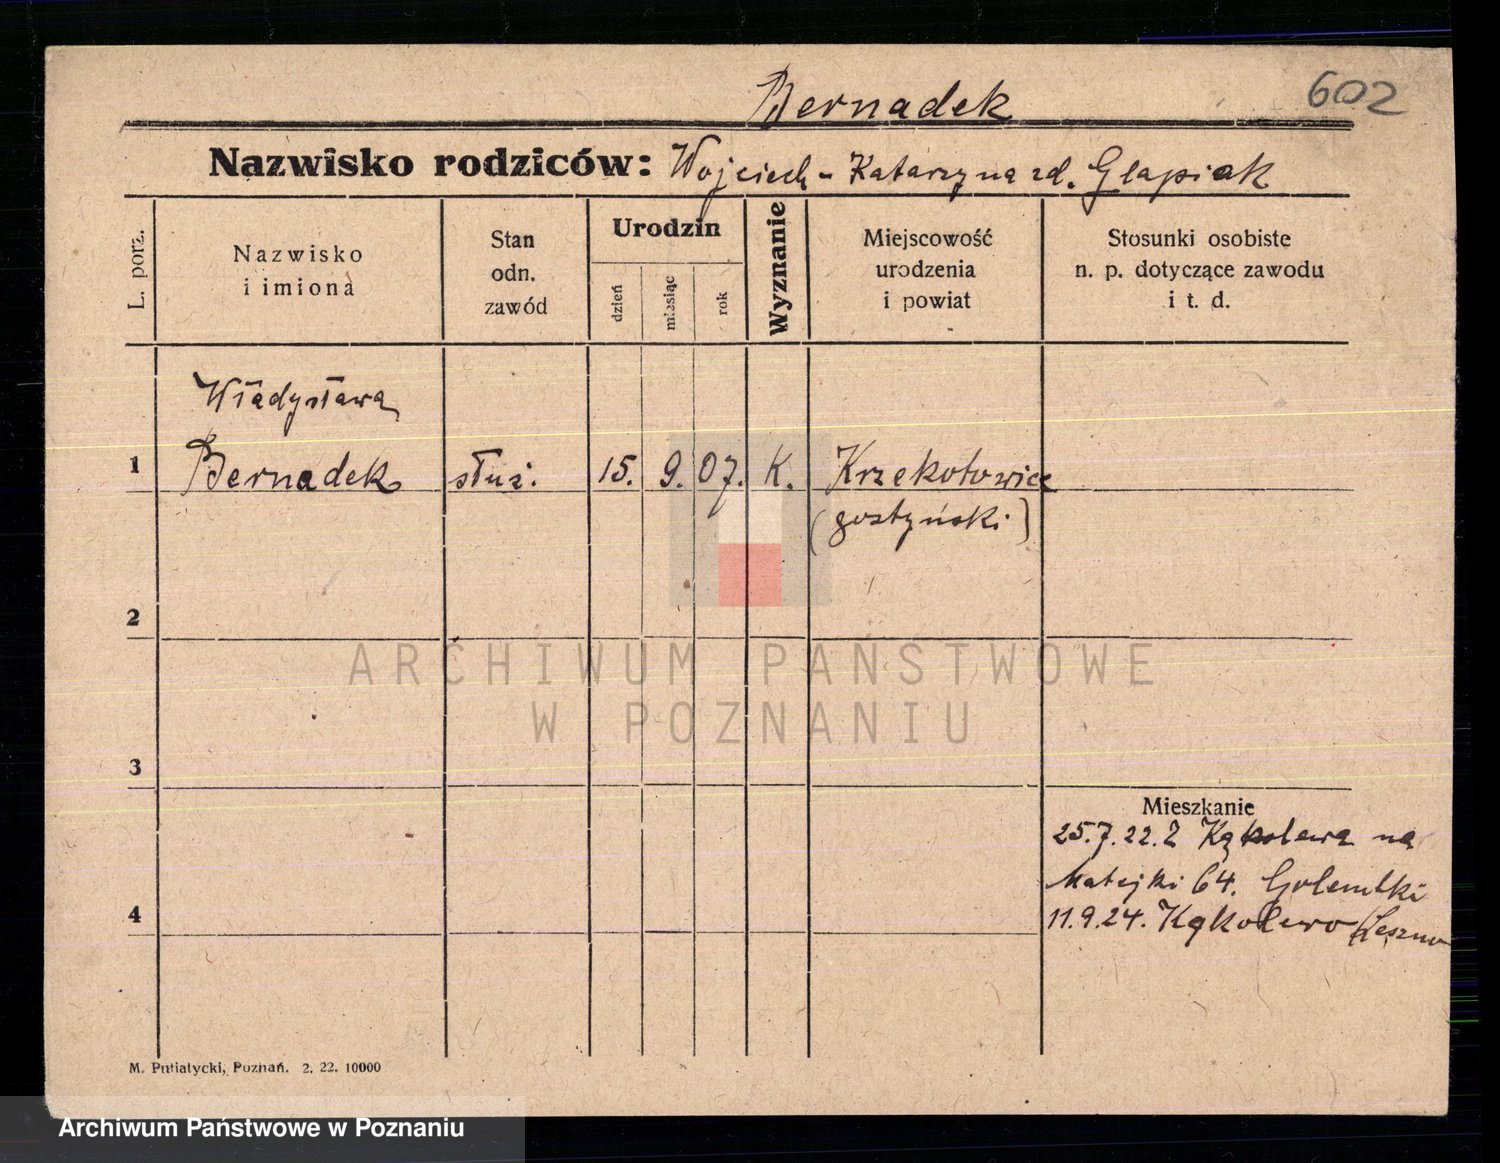 Bernadek
602
Nazwisko rodziców: Wojciech - Katarzyna zd. Glapiak
L. porz.
Nazwisko
i imiona
Stan
odn.
zawód
Urodzin
dzień
miesiąc
rok
Wyznanie
Miejscowość
urodzenia
i powiat
Stosunki osobiste
n. p. dotyczące zawodu
i t. d.
Władysława
1 Bernadek służ. 15. 9. 07. K. Krzekotowice
(gostyński)
2
ARCHIWUM PAŃSTWOWE
W POZNANIU
3
Mieszkanie
25.7.22. Z Kąkolewa na
Matejki 64.
4
11.9.24. Kąkolewo (Leszno
M. Putiatycki, Poznań. 2. 22. 10000
Archiwum Państwowe w Poznaniu